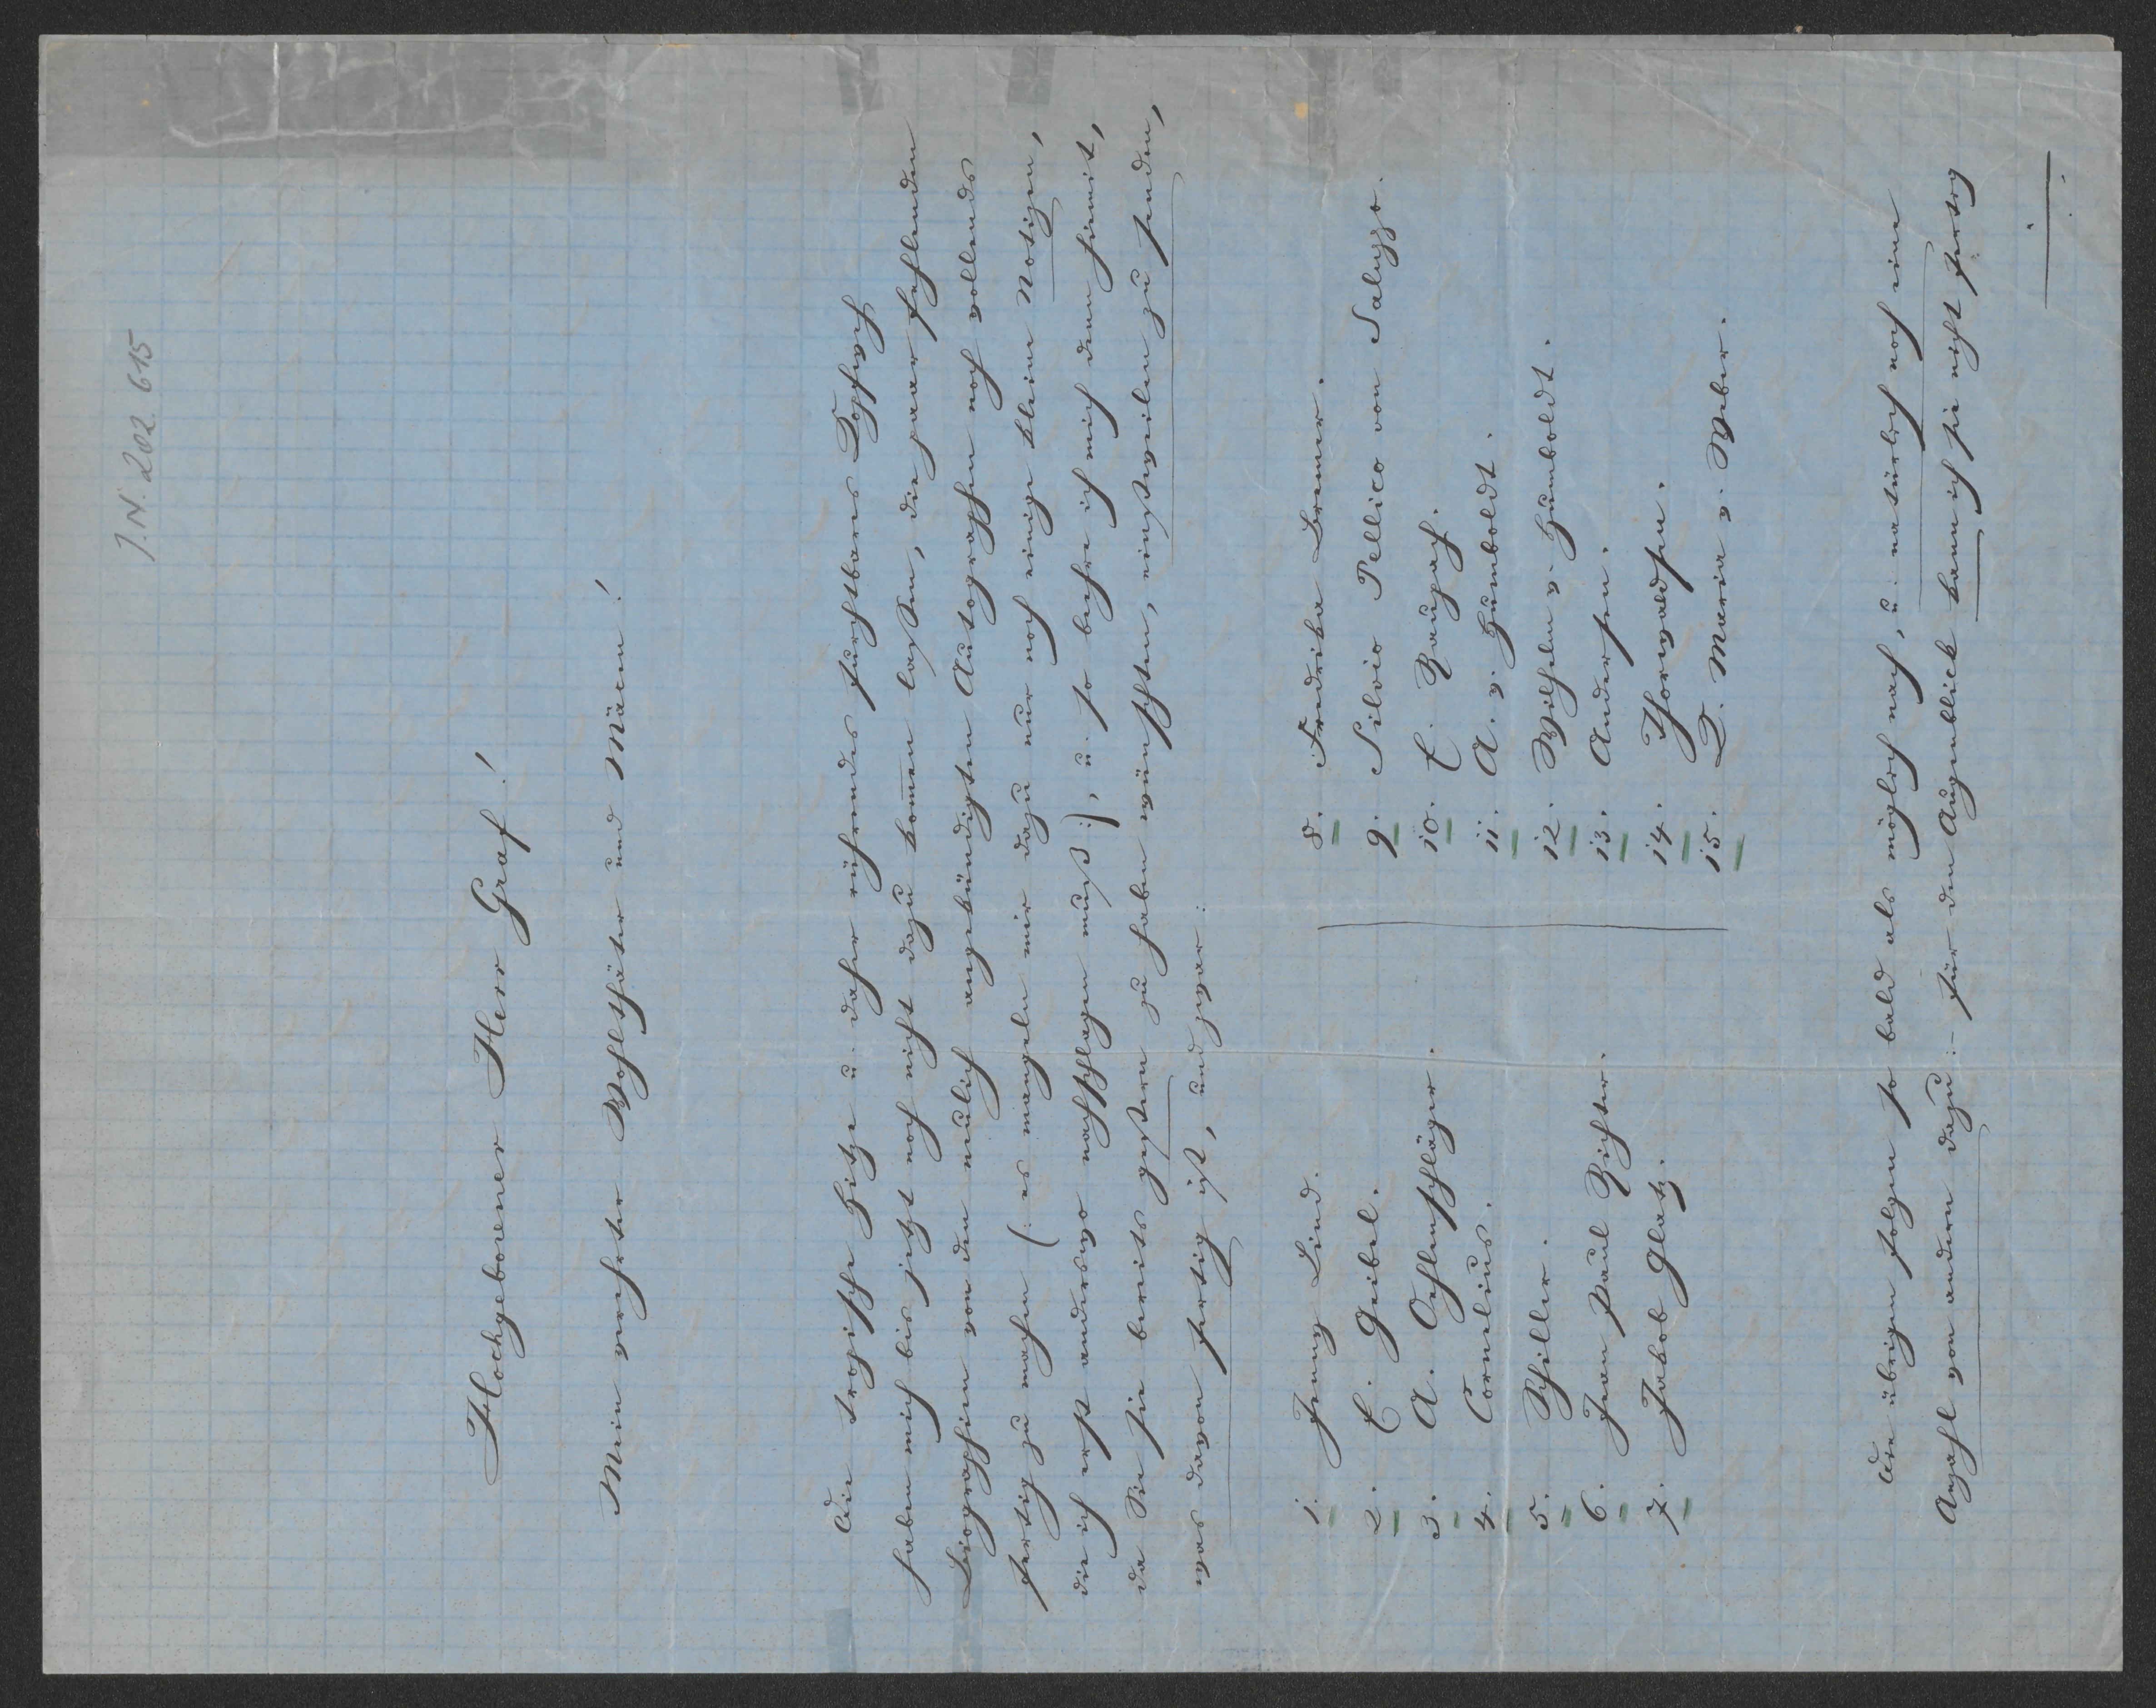 J.N. 202.615
Hochgeborener Herr Graf!
Mein verehrter Wohlthäter und Mäcen!
Die tropische Hitze u. daher rührendes furchtbares Kopfweh
haben mich bis jetzt noch nicht dazu kom̄en laßen, die paar fehlenden
Biographien von den neulich angekündigten Autographen noch vollends
fertig zu machen (: es mangeln mir dazu nur noch einige kleine Notizen,
die ich erst anderswo nachschlagen muß :), u. so beehre ich mich denn hiemit,
da Sie sie bereits gestern zu haben wünschten, einstweilen zu senden,
was davon fertig ist, und zwar:
1. Jenny Lind.
2. E. Geibel.
3. A. Oehlenschläger.
4. Cornelius.
5. Schiller.
6. Jean Paul Richter.
7. Jakob Glatz.
8. Fredrika Bremer.
9. Silvio Pellico von Saluzzo.
10. E. Raupach.
11. A. v. Humboldt.
12. Wilhelm v. Humboldt.
13. Andersen.
14. Thorwaldsen.
15. C. Maria v. Weber.
Die übrigen folgen so bald als möglich nach, u. natürlich noch eine
Anzahl von andern dazu :- für den Augenblick kann ich sie nicht fertig